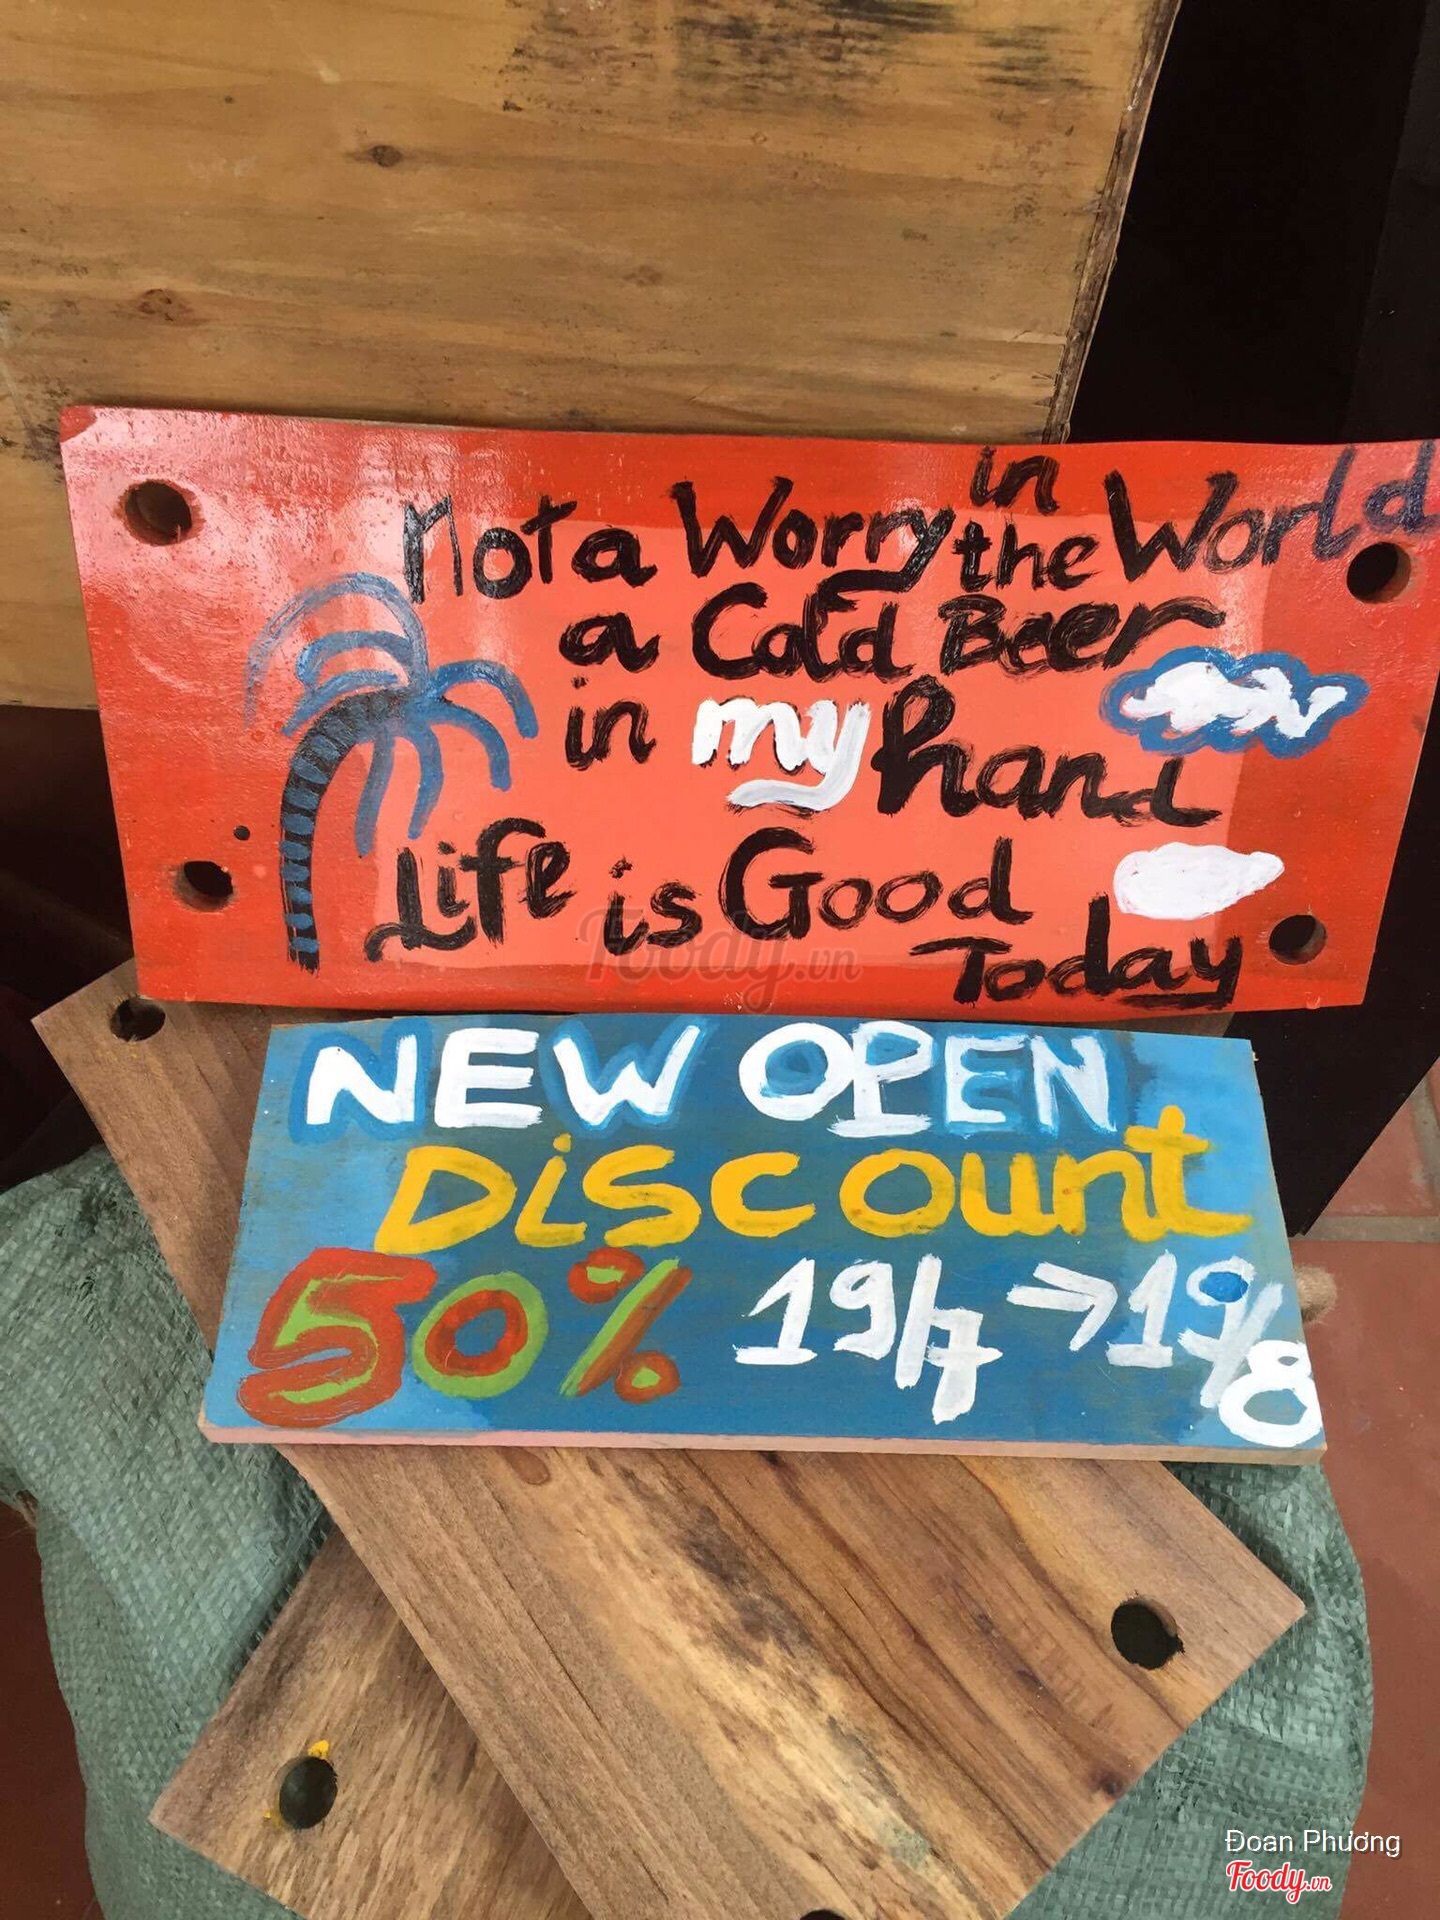 Not a Worry in the World
a Cold Beer
in my hand
Life is Good
Today
Foody.vn
NEW OPEN
Discount
50% 19/7 → 19/8
Đoan Phương
Foody.vn